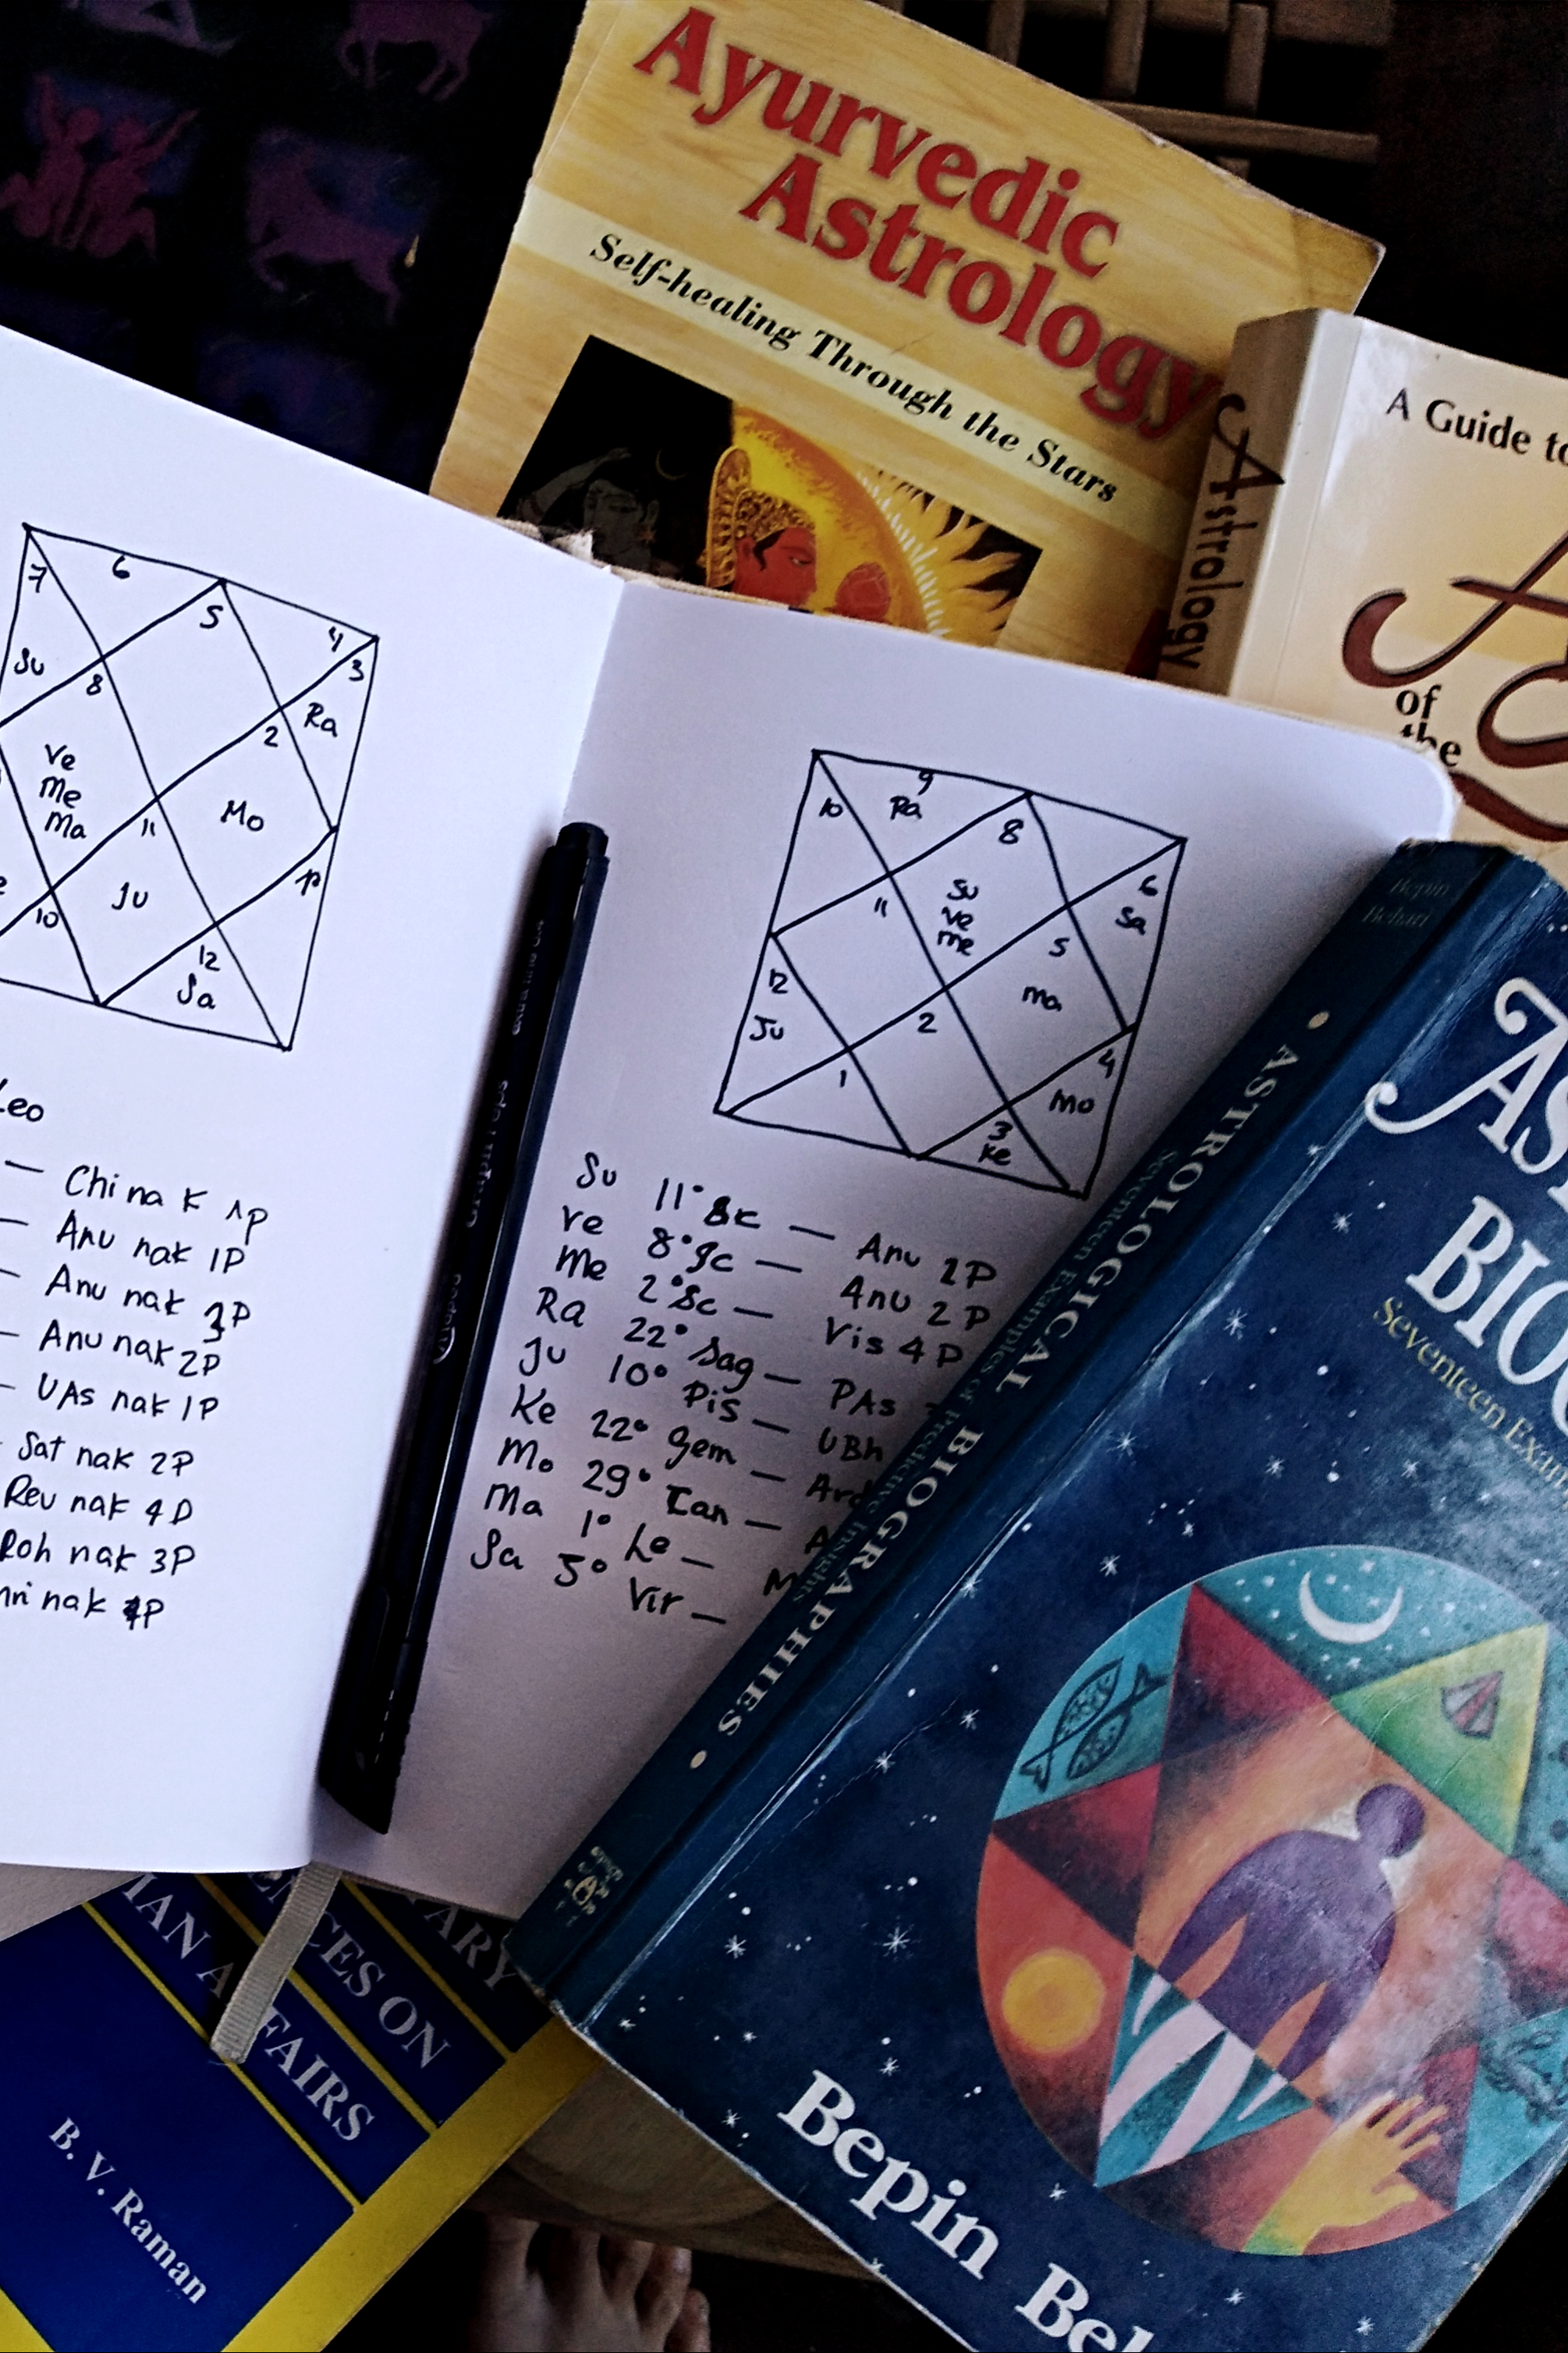 Ayurvedic
Astrology
Self-healing Through the Stars
Astrology
A Guide to
of
the
7
6
5
4
3
Su
8
Ra
2
Ve
Me
Ma
Mo
11
Ju
10
12
Sa
Leo
— Chi nak 1P
— Anu nak 1P
— Anu nak 3P
— Anu nak 2P
— UAs nak 1P
Sat nak 2P
Rev nak 4P
Roh nak 3P
nak 4P
10
9
Ra
8
Su
Ve
Me
6
Sa
11
5
Ma
12
Ju
2
1
4
Mo
3
Ke
Su 11° Sc — Anu 2P
Ve 8° Sc — Anu 2P
Me 2° Sc — Vis 4P
Ra 22° Sag — PAs
Ju 10° Pis — UBh
Ke 22° Gem — Ard
Mo 29° Can — A
Ma 1° Le — M
Sa 5° Vir —
Bepin
Behari
• ASTROLOGICAL BIOGRAPHIES •
Seventeen Examples of Predictive Insights
AS
BIO
Seventeen Exam
Bepin Beh
ARY
CES ON
MAN AFFAIRS
B. V. Raman